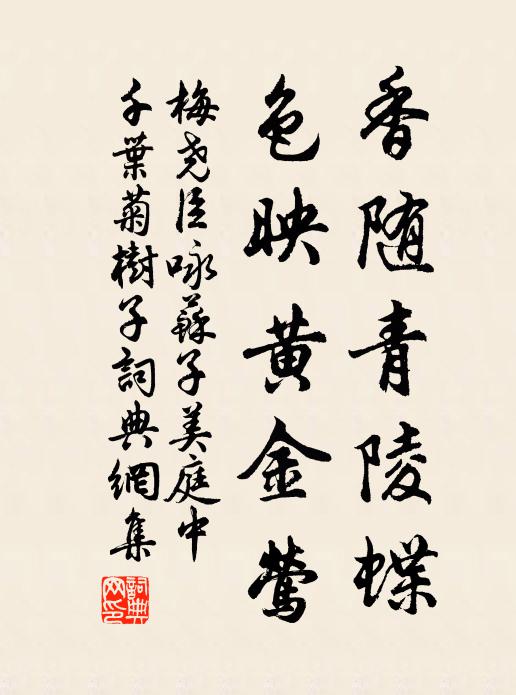 香随青陵蝶
色映黄金莺
梅尧臣咏蘇子美庭中
千葉菊樹子詞典網集
詞典網印